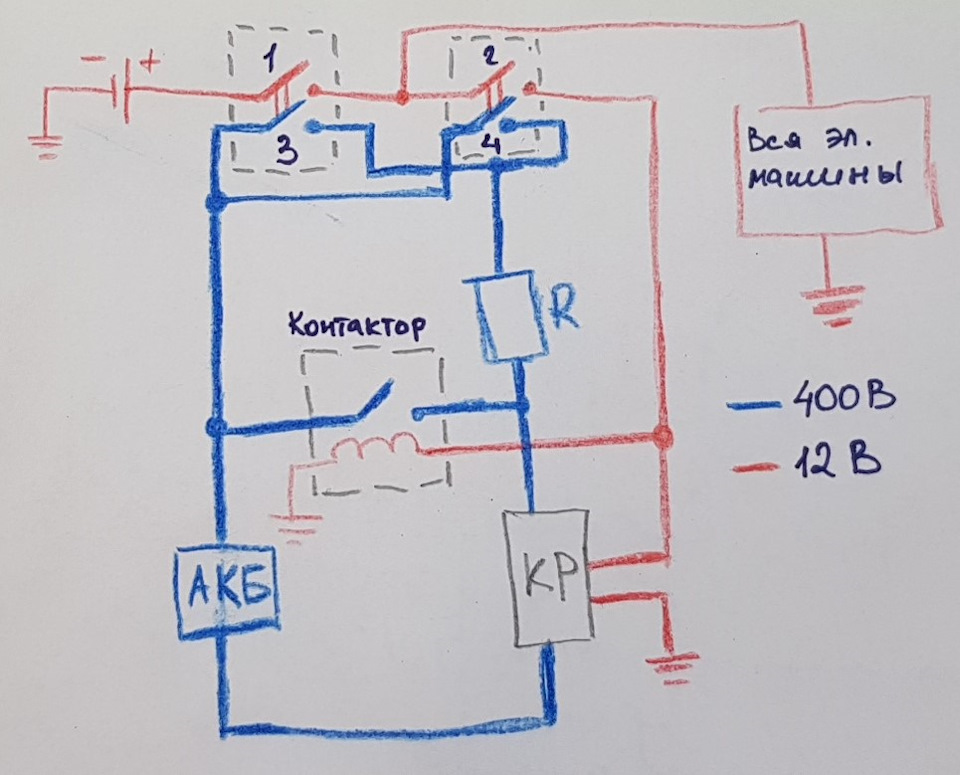 - +
1
2
3
4
Вся эл.
машины
R
Контактор
400В
12В
АКБ
КР